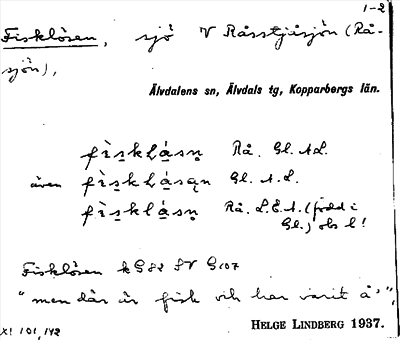 1-2
Fisklösen, sjö V Råsstjåsjön (Rå-
sjön),
Älvdalens sn, Älvdals tg, Kopparbergs län.
Rå. Gl. A.L.
även Gl. A.L.
Rå. L.E.A. (född i
Gl.) obs l!
Fisklösen k G82 SV G107
"men där är fisk och har varit å",
HELGE LINDBERG 1937.
XI 101, 142